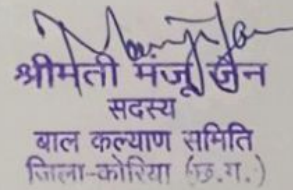 श्रीमती मंजू जैन
सदस्य
बाल कल्याण समिति
जिला-कोरिया (छ.ग.)